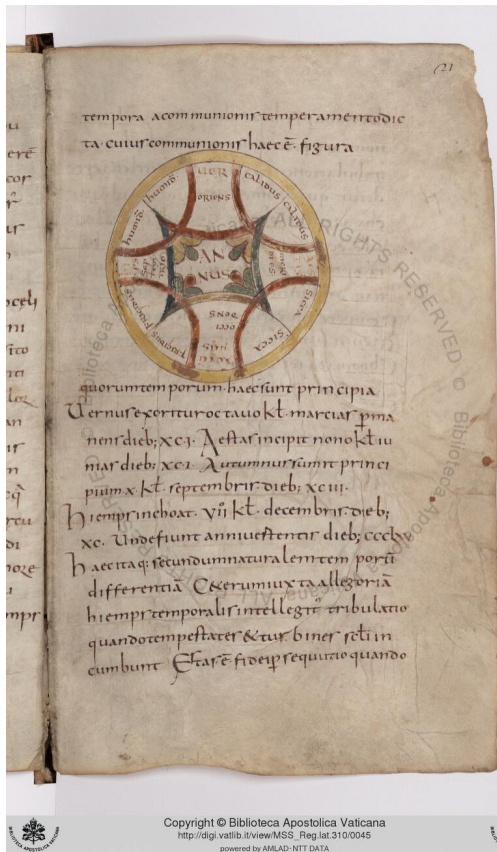 (21
tempora acommunionis temperamento dic
ta. cuius communionis haec ē. figura
VER
ORIENS
humiđ
humiđ
CALIDUS
CALIDUS
SICCA
SICCA
FRIGIDUS
FRIGIDUS
AN
NUS
occi
DNS
quorum temporum. haec sunt principia
Uernus exoritur octauo kƚ. marcias ꝑma
nens dieb; xci. Aestas incipit nono kƚ iu
nias dieb; xci. Autumnus sumit princi
pium x. kƚ. septembris dieb; xciii.
hiemps inchoat. vii kƚ. decembris dieb;
xc. Unde fiunt anni uestentis dieb; ccclxv
haec itaq; secundum naturalem temporū
differentiā Ceterum iuxta allegoriā
hiemps temporalis intellegit tribulatio
quando tempestates & turbines scłi in
cumbunt Estas ē fidei ꝑsequutio quando
Copyright © Biblioteca Apostolica Vaticana
http://digi.vatlib.it/view/MSS_Reg.lat.310/0045
powered by AMLAD-NTT DATA